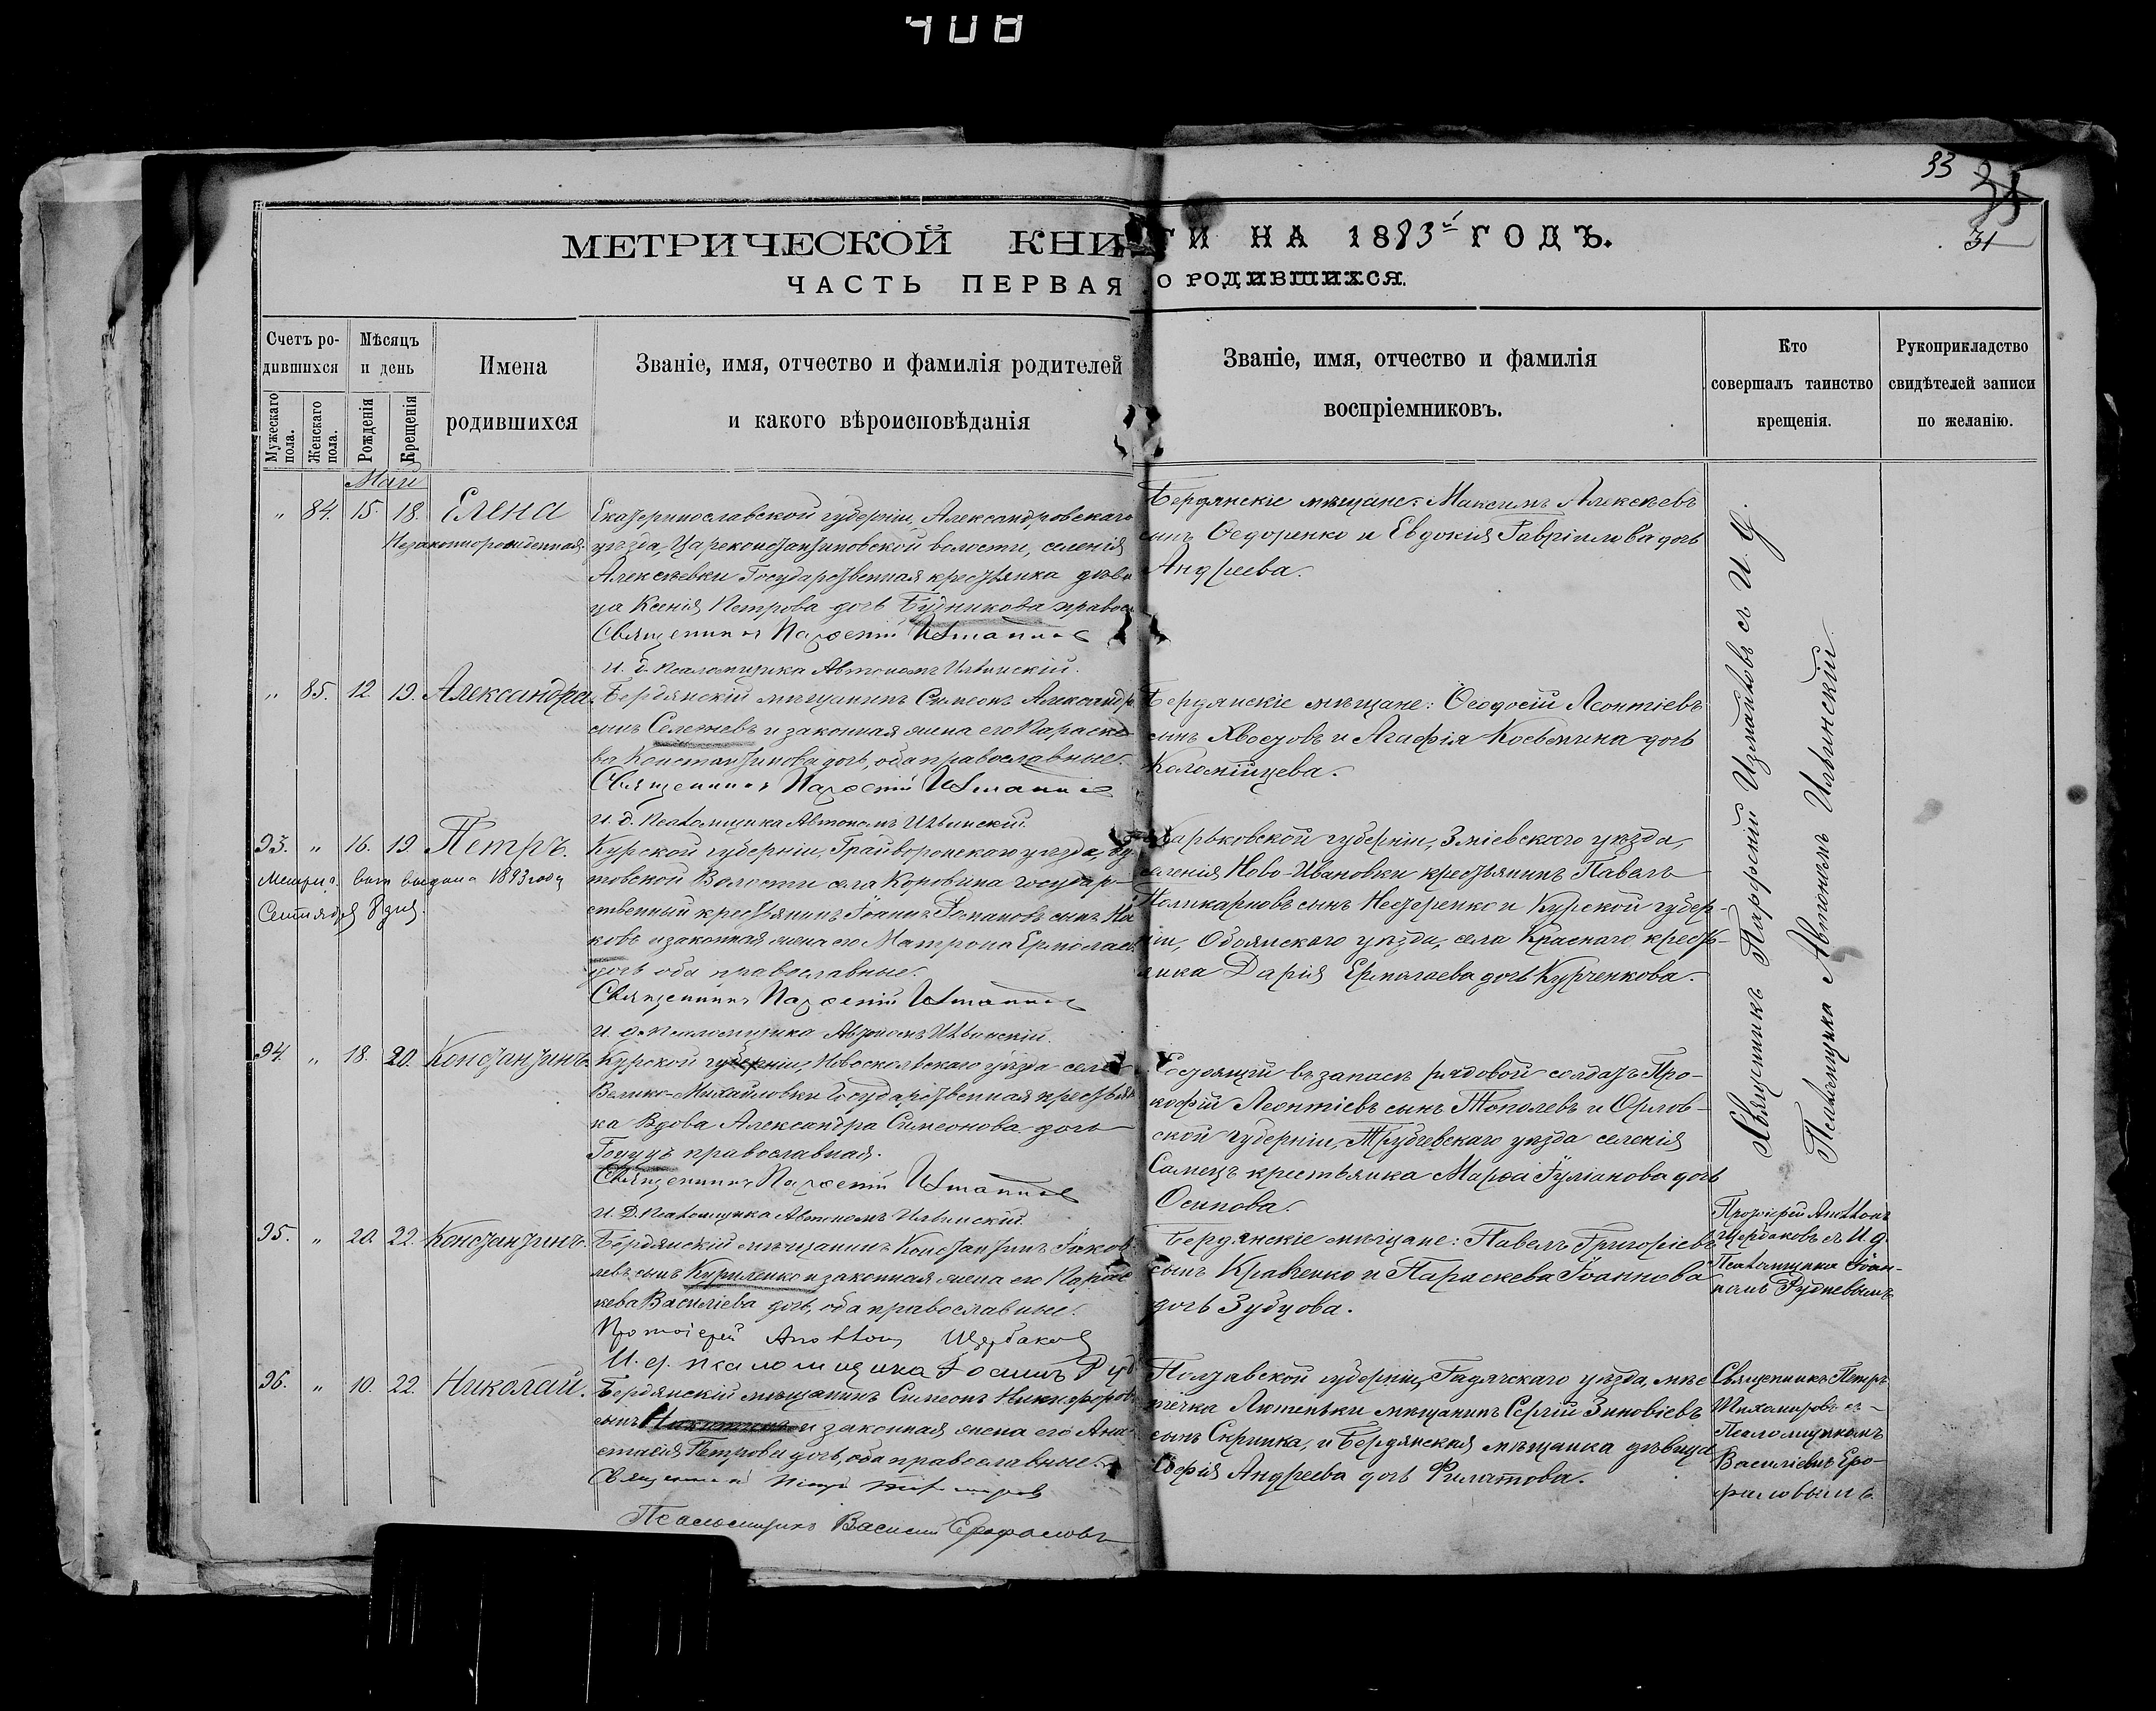 408
33
35
31
МЕТРИЧЕСКОЙ КНИГИ НА 1883й ГОДЪ.
ЧАСТЬ ПЕРВАЯ О РОДИВШИХСЯ.
Счетъ ро-
дившихся
Мужескаго пола.
Женскаго пола.
Мѣсяцъ
и день
Рожденія
Крещенія
Имена
родившихся
Званіе, имя, отчество и фамилія родителей
и какого вѣроисповѣданія
Званіе, имя, отчество и фамилія
воспріемниковъ.
Кто
совершалъ таинство
крещенія.
Рукоприкладство
свидѣтелей записи
по желанію.
Май
„ 84. 15. 18. Елена
Незаконнорожденная.
Екатеринославской губерніи, Александровскаго
уѣзда, Цареконстантиновской волости, селенія
Алексѣевки Государственная крестьянка дѣви
ца Ксенія Петрова дочь православ
Священникъ Парѳеній
И. д. Псаломщика Автономъ Ильинскій.
Бердянскіе мѣщане: Максимъ Алексѣевъ
сынъ Ѳедоренко и Евдокія Гавріилова дочь
Андреева.
„ 85. 12. 19. Александра.
Бердянскій мѣщанинъ Симеонъ Александр
сынъ Селезневъ и законная жена его Параске
ва Константинова дочь, оба православные.
Священникъ Парѳеній
И. д. Псаломщика Автономъ Ильинскій.
Бердянскіе мѣщане: Ѳеодосій Леонтіевъ
сынъ Хвостовъ и Агафія дочь
Коломійцева.
93. „ 16. 19. Петръ.
Метрич. вып. выдана 1893 года
Сентября 8 дня.
Курской губерніи, Грайворонскаго уѣзда,
товской Волости села Коровина государ-
ственный крестьянинъ Іоаннъ Романовъ сынъ
ковъ и законная жена его Матрона Ермолаев
дочь оба православные.
Священникъ Парѳеній
И. д. Псаломщика Автономъ Ильинскій.
Харьковской губерніи, Зміевскаго уѣзда,
селенія Ново-Ивановки крестьянинъ Павелъ
Поликарповъ сынъ Нестеренко и Курской губер-
ніи, Обоянскаго уѣзда, села Краснаго крестьянка
Дарія Ермолаева дочь Курченкова.
94. „ 18. 20. Константинъ.
Курской губерніи, Новоскольскаго уѣзда села
Велико-Михайловки Государственная крестьян
ка Вдова Александра Симеонова дочь
православная.
Священникъ Парѳеній
И. д. Псаломщика Автономъ Ильинскій.
Состоящій въ запасѣ рядовой солдатъ Про-
кофій Леонтіевъ сынъ Тополевъ и Орлов-
ской губерніи, Трубчевскаго уѣзда селенія
Самецъ крестьянка Марѳа Іуліанова дочь
Осипова.
Священникъ Парѳеній Измаиловъ съ И. д.
Псаломщика Автономъ Ильинскій
95. „ 20. 22. Константинъ.
Бердянскій мѣщанинъ Константинъ Іаков
левъ сынъ Куриленко и законная жена его Парас
кева Василіева дочь, оба православные.
Протоіерей Антоній Щербаковъ
И. д. псаломщика Іоаннъ Руд
Бердянскіе мѣщане: Павелъ Григоріевъ
сынъ Кравченко и Параскева Іоаннова
дочь Зубцова.
Протоіерей Антоній
Щербаковъ съ И. д.
Псаломщика Іоан-
номъ Рудневымъ
96. „ 10. 22. Николай.
Бердянскій мѣщанинъ Симеонъ Никифоровъ
сынъ и законная жена его Ана
стасія Петрова дочь, оба православные.
Священникъ Петръ Тихомировъ
Псаломщикъ Василій Ерофаловъ
Полтавской губерніи, Гадячскаго уѣзда, мѣс
течка Лютеньки мѣщанинъ Сергій Зиновіевъ
сынъ Скрипка, и Бердянская мѣщанка дѣвица
Софія Андреева дочь Филатова.
Священникъ Петръ
Тихомировъ съ
Псаломщикомъ
Василіемъ Еро-
фаловымъ